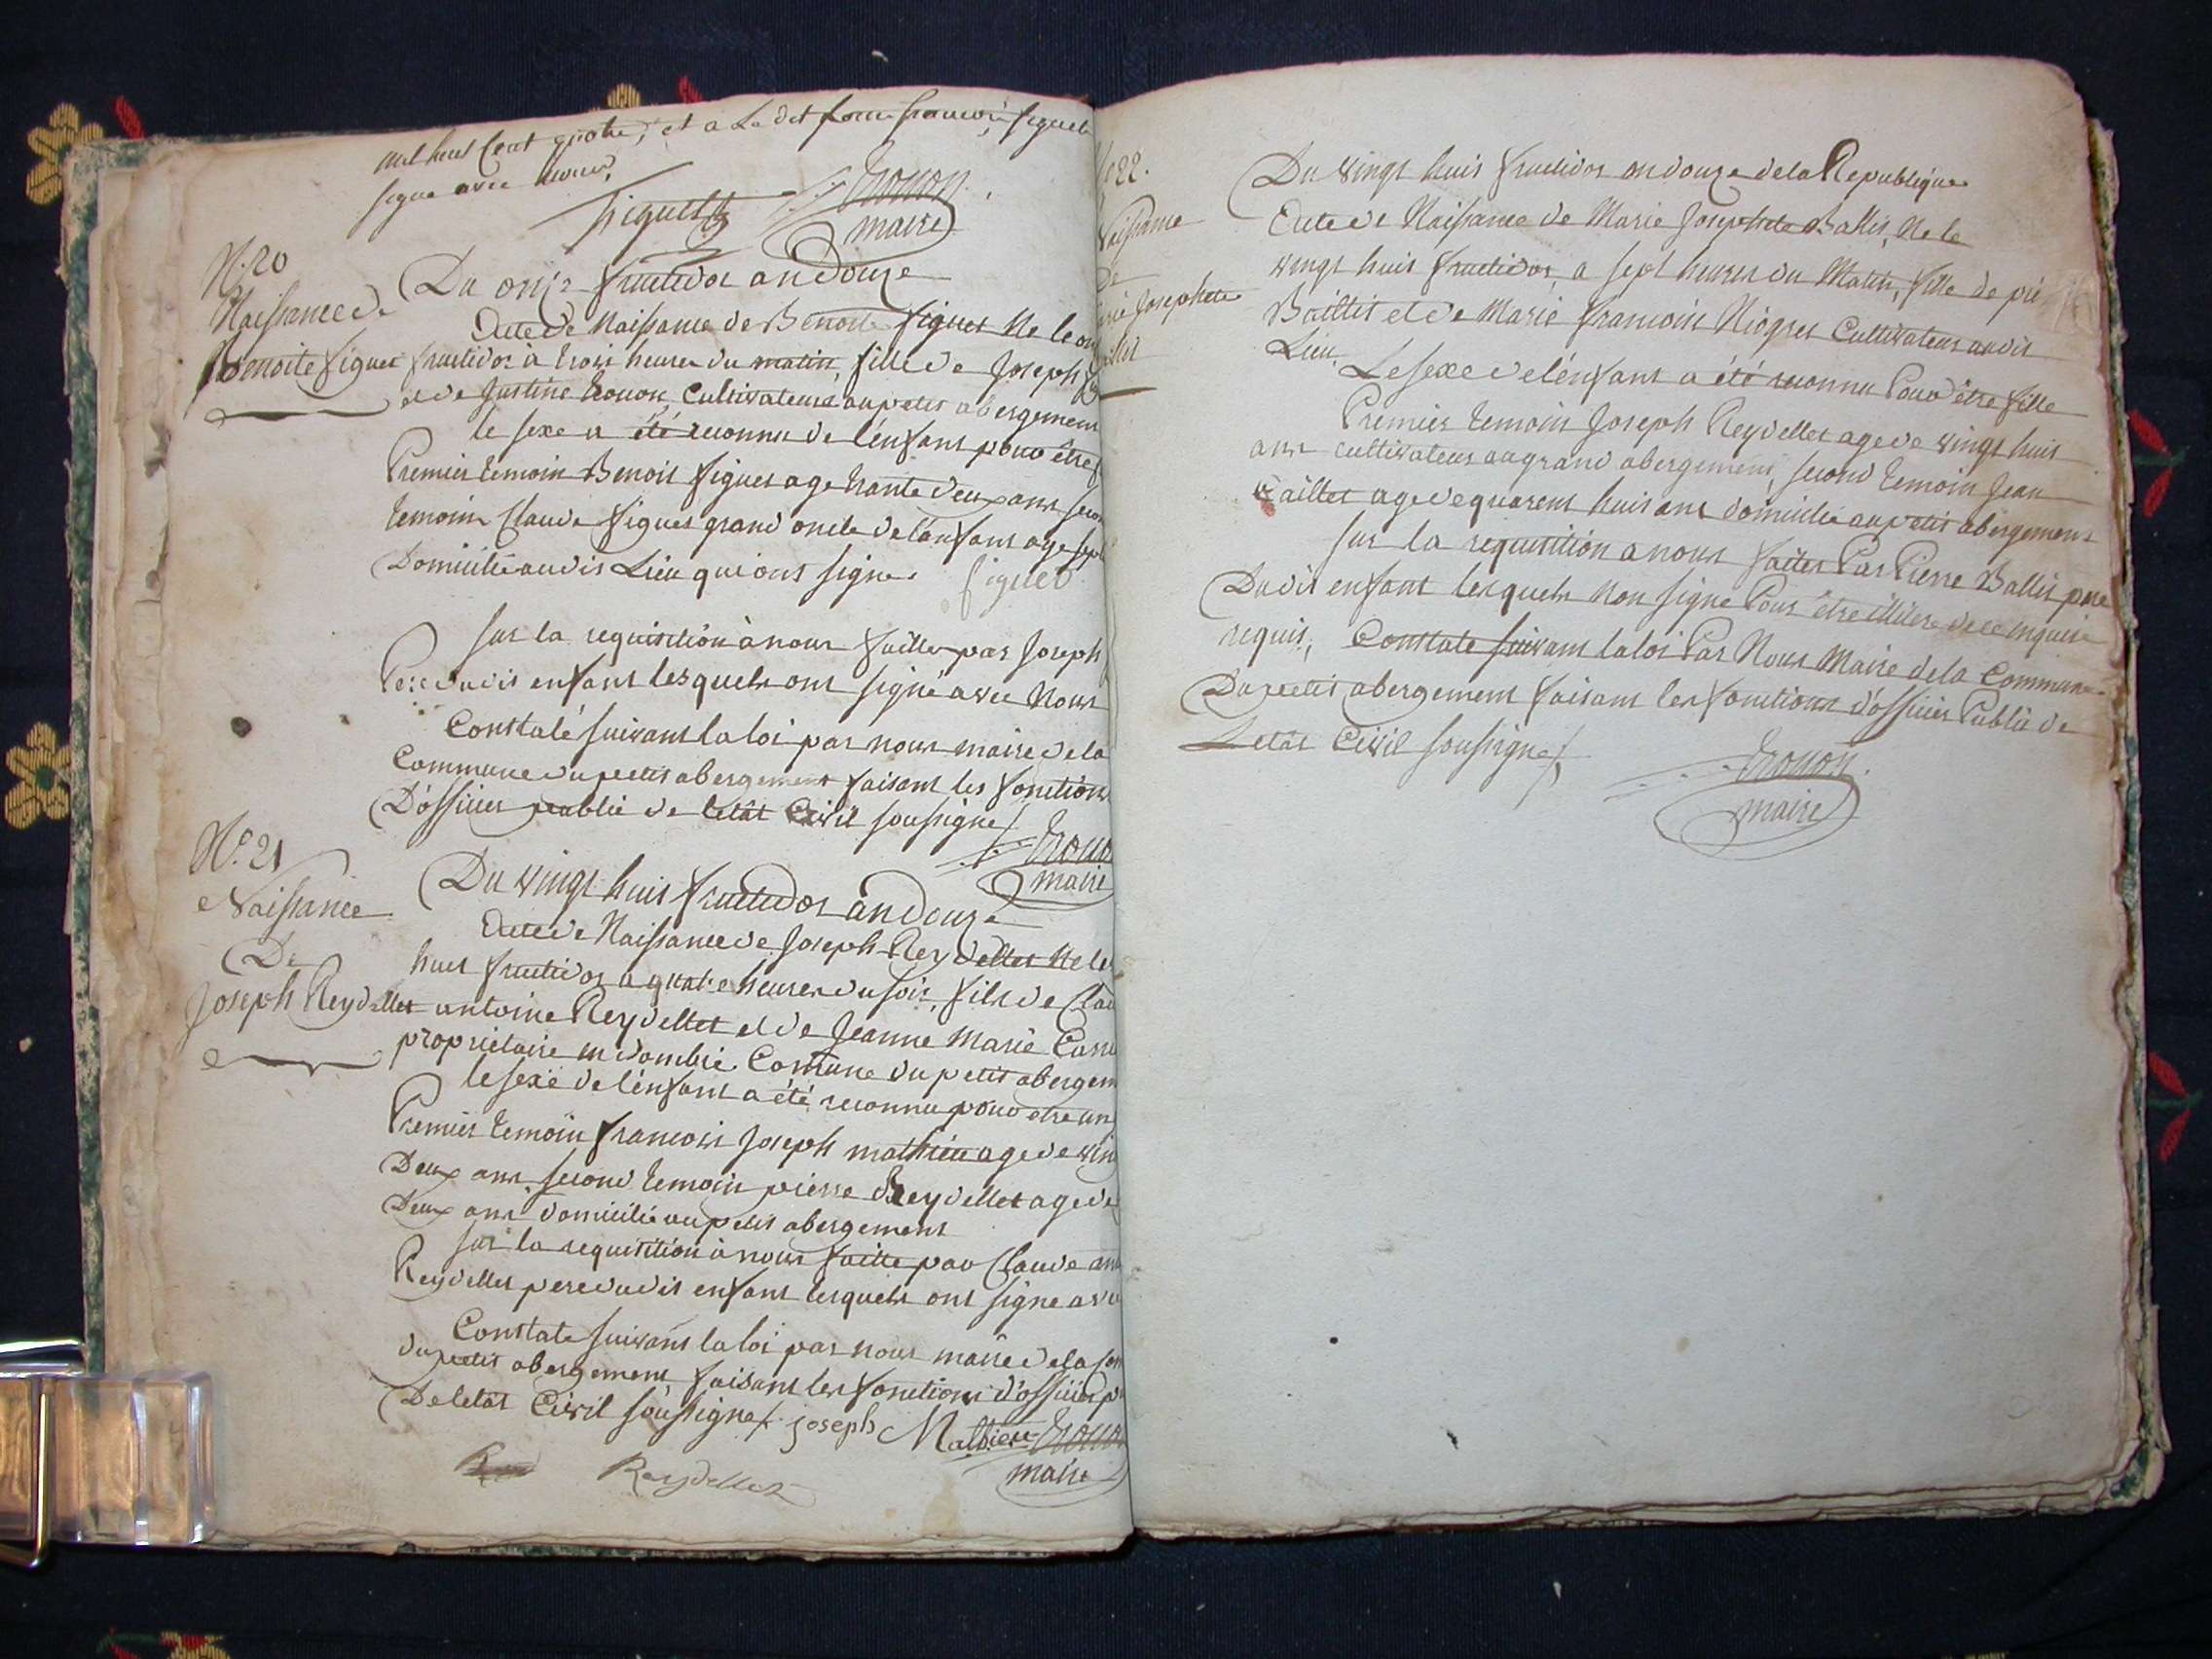 mil huit Cent quatre, et a Le dit
signe avec nous,
figuet
Trouon
maire
N.º 20
Naissance de
Benoite figuet
Du onze fructidor an douze
Acte de Naissance de Benoite figuet Ne le on
fructidor à trois heures du matin, fille de Joseph
et de Justine Trouon Cultivateurs au petit abergement
le sexe a été reconnu de l'enfant pour être
Premier temoin Benoit figuet age trante deux ans secon
temoin Claude figuet grand oncle de l'enfant age
Domicilié audit Lieu qui ont signe. figuet
sur la requisition à nous faitte par Joseph
Pere dudit enfant lesquels ont signé avec Nous
Constaté suivant la loi par nous maire de la
Commune du petit abergement faisant les fonctions
D'officier public de letât Civil soussigne
Trouo
maire
N.º 21
Naissance
De
Joseph Reydellet
Du vingt huit fructidor an Douze
Acte de Naissance de Joseph Reydellet Ne le
huit fructidor a quatre heures du soir, fils de Clau
antoine Reydellet et de Jeanne Marie
propriétaire en dombie Comune du petit abergem
le sexe de l'enfant a été reconnu pour etre un
Premier temoin francois Joseph mathieu age de vin
Deux ans, second temoin pierre Reydellet age de
Deux ans domicilié au petit abergement
sur la requisition à nous faitte par Claude an
Reydellet pere dudit enfant lesquels ont signe av
Constate suivant la loi par nous maire de la Com
du petit abergement faisant les fonctions d'officier p
De letât Civil soussigne joseph Mathieu Trouon
maire
Reydellet
No 22.
Naissance
De
Josephete
Du vingt huit fructidor an douze de la Republique
Acte de Naissance de Marie Josephete Ballit, Ne le
vingt huit fructidor, a sept heures du Matin, fille de pie
Baillit et de Marie francoise Niogret Cultivateur audit
Lieu,
Le sexe de l'enfant a été reconnu Pour être fille
Premier temoin Joseph Reydellet age de vingt huit
ans cultivateur au grand abergement, second temoin Jean
age de quarent huit ans domicilié au petit abergement
sur la requisition a nous faites Par Pierre Ballit pere
Dudit enfant lesquels non signe Pour être illitere de ce enquis
requis, Constate suivant la loi Par Nous Maire de la Commune
Du petit abergement faisant les fonctions d'officier Public de
Letât Civil soussigne
Trouon
maire